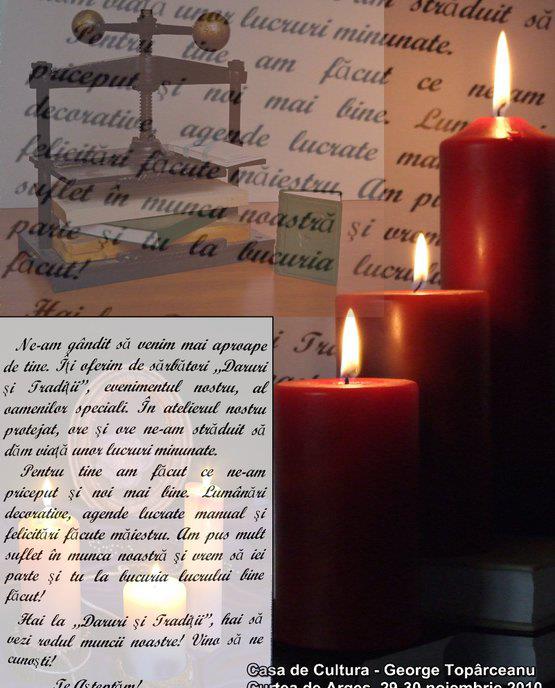 dăm viață unor lucruri minunate.
străduit să
Pentru tine am făcut ce ne-am
priceput și noi mai bine.
decorative, agende lucrate
felicitări făcute măiestru. Am
suflet în munca noastră
parte și tu la bucuria lucrului
făcut!
Hai la
Ne-am gândit să venim mai aproape
de tine. Îți oferim de sărbători „Daruri
și Tradiții”, evenimentul nostru, al
oamenilor speciali. În atelierul nostru
protejat, ore și ore ne-am străduit să
dăm viață unor lucruri minunate.
Pentru tine am făcut ce ne-am
priceput și noi mai bine. Lumânări
decorative, agende lucrate manual și
felicitări făcute măiestru. Am pus mult
suflet în munca noastră și vrem să iei
parte și tu la bucuria lucrului bine
făcut!
Hai la „Daruri și Tradiții”, hai să
vezi rodul muncii noastre! Vino să ne
cunoști!
Te Așteptăm!
Casa de Cultura - George Topârceanu
Curtea de Argeș, 29-30 noiembrie 2010